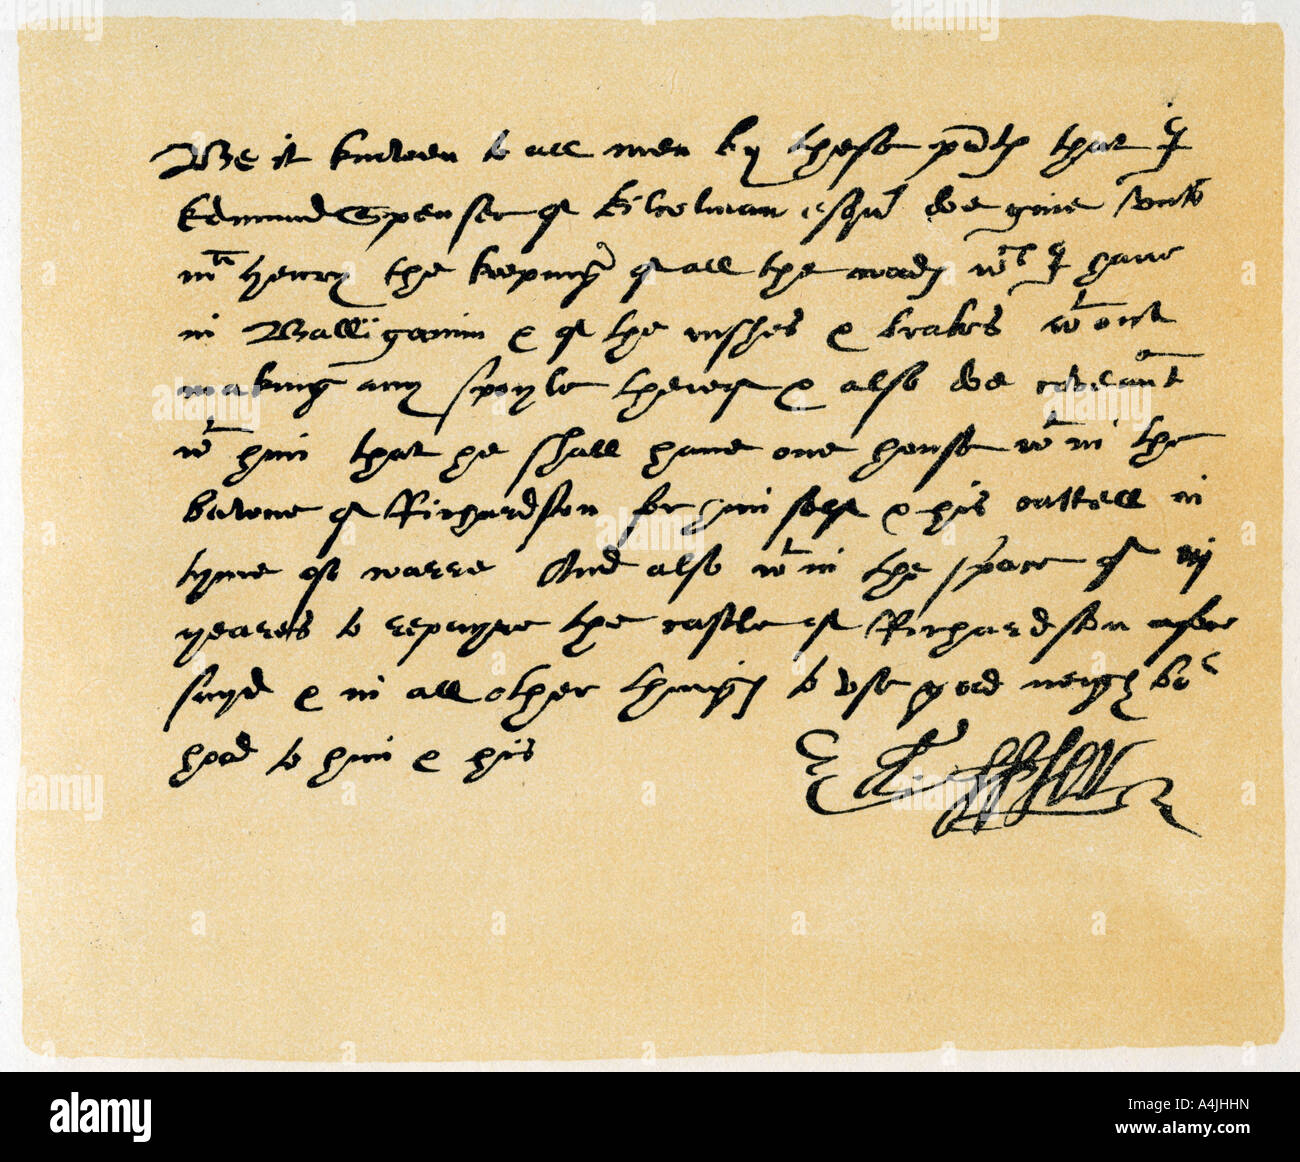 Be it knowen to all men by these pñts that I
Edmund Spenser of Kilcolman esqʳ doe giue vnto
mʳ Henry the keeping of all the woods wᶜʰ I haue
in Balliganim & of the rushes & brakes wᵗout
making any spoyle therof & also doe coueñnt
wᵗ him that he shall haue one house wᵗin the
bawne of Richardston for him self & his cattell in
tyme of warre And also wᵗin the space of vij
yeares to repayre the castle of Richardston afore
sayd & in all other things to vse good neighboʳ
hood to him & his
Ed: Spser
alamy
Image ID: A4JHHN
www.alamy.com